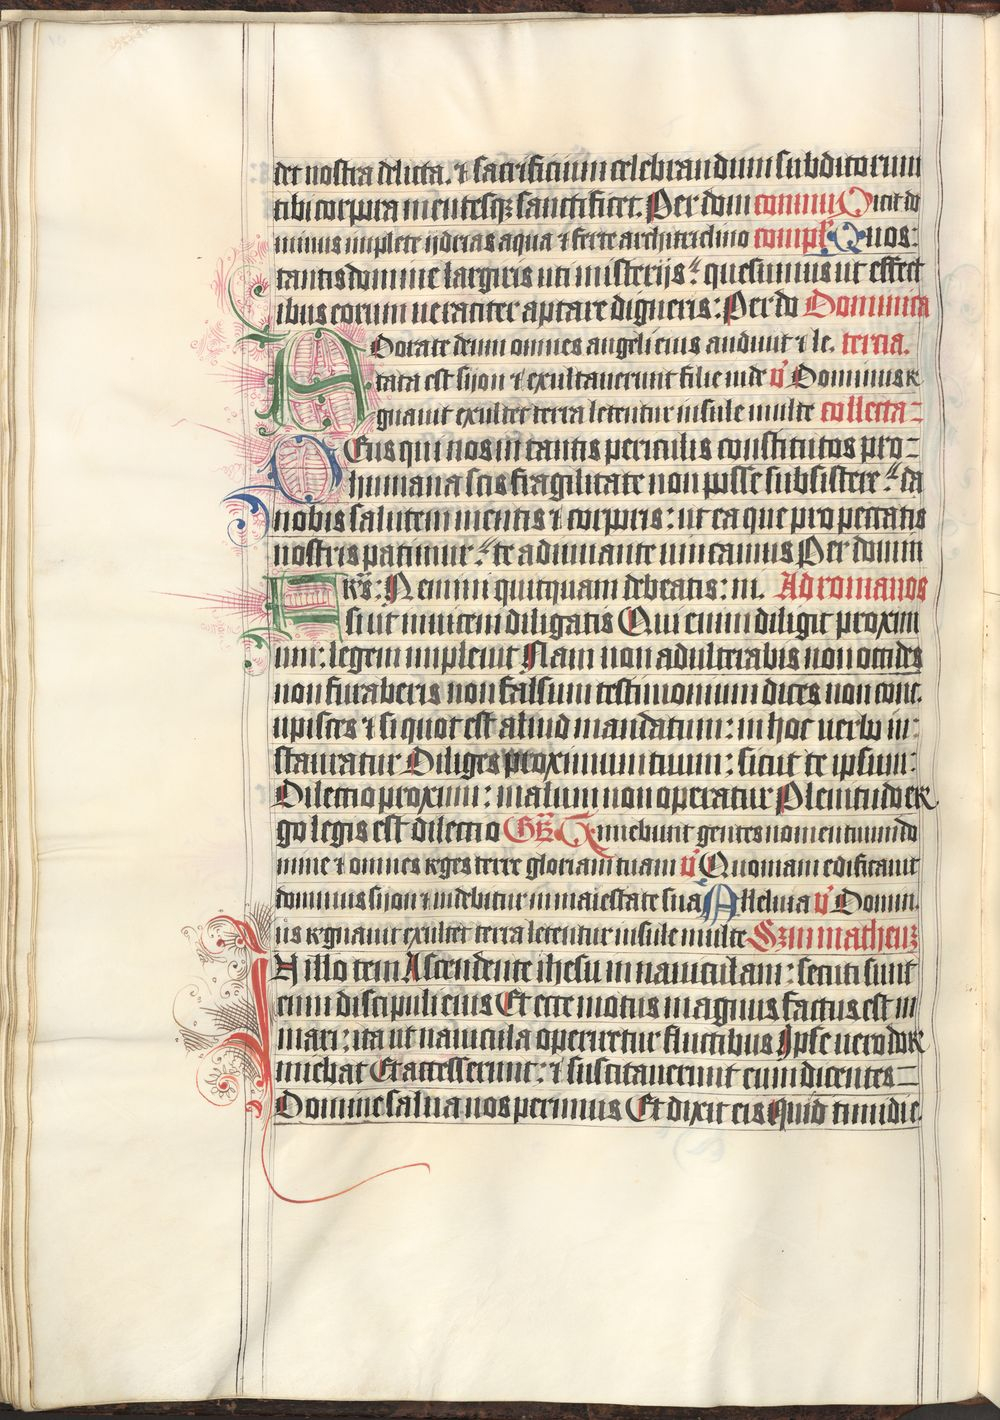 det nostra delicta. ⁊ sacrificium celebrandum subditorum
tibi corpora mentesqꝫ sanctificet. Per dom commu Dicit do
minus implete ijdrias aqua ⁊ ferte architriclino compl Quos:
tantis domine largiris uti misterijs: quesumus ut effect
ibus eorum ueraciter aptare digneris: Per do Dominica
ADorate deum omnes angeli eius audiuit ⁊ le. tercia.
tata est sijon ⁊ exultauerunt filie iude v̄ Dominus re
gnauit exultet terra letentur insule multe collecta
DEus qui nos in tantis periculis constitutos pro
humana scis fragilitate non posse subsistere: da
nobis salutem mentis ⁊ corporis: ut ea que pro peccatis
nostris patimur: te adiuuante uincamus Per domin
FRs: Nemini quitquam debeatis: ni. Ad romanos
siut inuicem diligatis Qui enim diligit proxim
um: legem impleuit Nam non adulterabis non occides
non furaberis non falsum testimonium dices non conc.
upisces ⁊ si quot est aliud mandatum: in hoc uerbo in
stauratur Diliges proximum tuum: sicut te ipsum:
Dilectio proximi: malum non operatur Plenitudo er
go legis est dilectio GR Timebunt gentes nomen tuum do
mine ⁊ omnes reges terre gloriam tuam v̄ Quoniam edificauit
dominus sijon ⁊ uidebitur in maiestate sua Alleluia v̄ Domin.
us regnauit exultet terra letentur insule multe Scdm matheuz
In illo tem Ascendente ihesu in nauiculam: secuti sunt
eum discipuli eius Et ecce motus magnus factus est in
mari: ita ut nauicula operiretur fluctibus Ipse uero dor
miebat Et accesserunt: ⁊ suscitauerunt eum dicentes
Domine salua nos perimus Et dixit eis Quid timidi e.